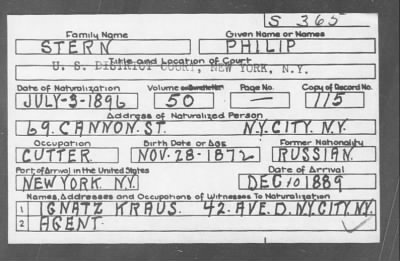 S 365
Family Name Given Name or Names
STERN PHILIP
Title and Location of Court
U. S. DISTRICT COURT, NEW YORK, N.Y.
Date of Naturalization Volume or Bundle No. Page No. Copy of Record No.
JULY-3-1896 50 — 115
Address of Naturalized Person
69. CANNON. ST. N.Y. CITY. N.Y.
Occupation Birth Date or Age Former Nationality
CUTTER. NOV. 28-1872 RUSSIAN.
Port of Arrival in the United States Date of Arrival
NEW YORK N.Y. DEC 10 1889
Names, Addresses and Occupations of Witnesses To Naturalization
1 IGNATZ KRAUS. 42. AVE. D. N.Y. CITY. N.Y.
2 AGENT.